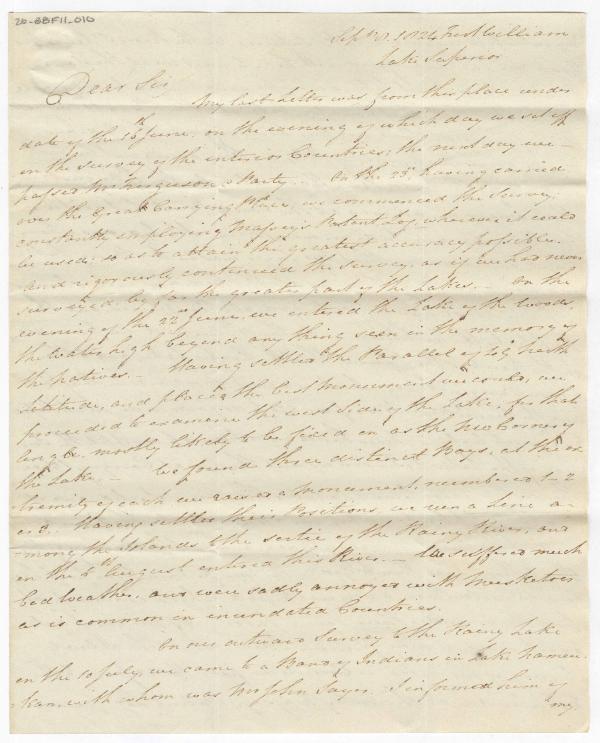 20-BBF11-010
Septr 8. 1824 Fort William
Lake Superior
Dear Sir
My last Letter was from this place under
date of the 16th June, on the evening of which day we set off
on the survey of the interior Countries; the next day we
passed Mr Ferguson & Party. On the 23d, having carried
over the Great Carrying Place, we commenced the Survey;
constantly employing Massey's Patent Log, wherever it could
be used; so as to attain the greatest accuracy possible.
and rigorously continued the survey, as if we had never
surveyed, by far the greater part of the Lakes. — On the
evening of the 22nd we entered the Lake of the Woods,
the water high beyond any thing seen in the memory of
the natives. — Having settled the Parallel of 49 North
Latitude, and placed the best Monument we could, we
proceeded to examine the west side of the Lake, for that
angle mostly likely to be fixed on as the NW Corner of
the Lake. — We found three distinct Bays, at the ex
tremity of each we raised a Monument, numbered 1-2
and 3. Having settled their Positions, we run a Line a-
mong the Islands to the sortie of the Rainy River, and
on the August entered this River. — We suffered much
bad weather, and were sadly annoyed with Musketoes
as is common in inundated Countries.
On our outward Survey to the Rainy Lake
on the 10 July, we came to a Band of Indians in Lake Namau
kan, with whom was Mr John Sayer. I informed him of
my